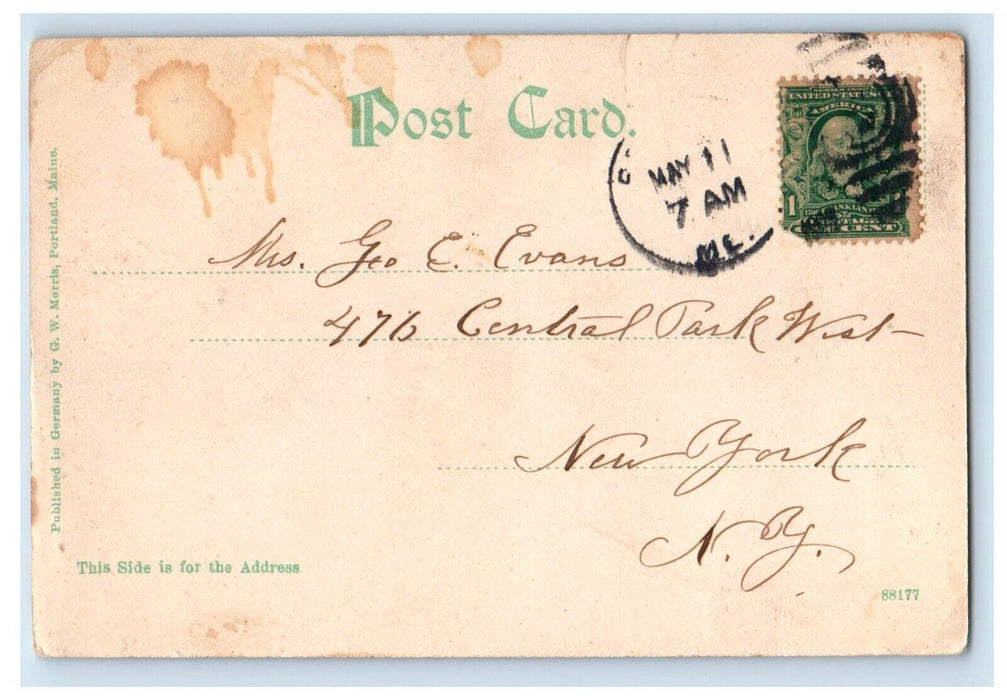 Post Card.
MAY 11
7 AM
ME.
SERIES 1902
UNITED STATES
AMERICA
1
FRANKLIN
CENT
Mrs. Geo E. Evans
476 Central Park West
New York
N.Y.
Published in Germany by G. W. Morris, Portland, Maine.
This Side is for the Address
88177